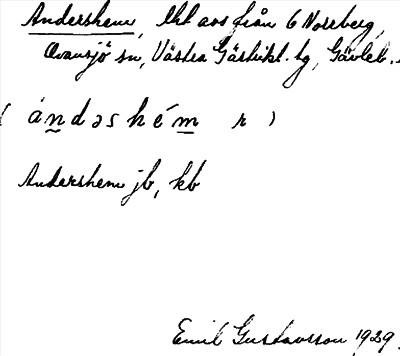 Andershem, lht avs från 6 Noreberg,
Ovansjö sn, Västra Gästrikl. hg, Gävleb.
( á n d ə s h é m r )
Andershem jb, kb
Emil Gustavsson 1929.